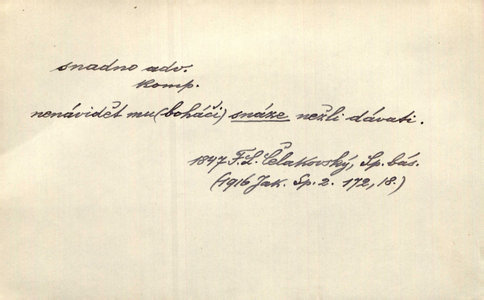 snadno adv.
komp.
nenávidět mu (boháči) snáze nežli dávati.
1847 F. L. Čelakovský, Sp. bás.
(1916 Jak. Sp. 2. 172, 18.)